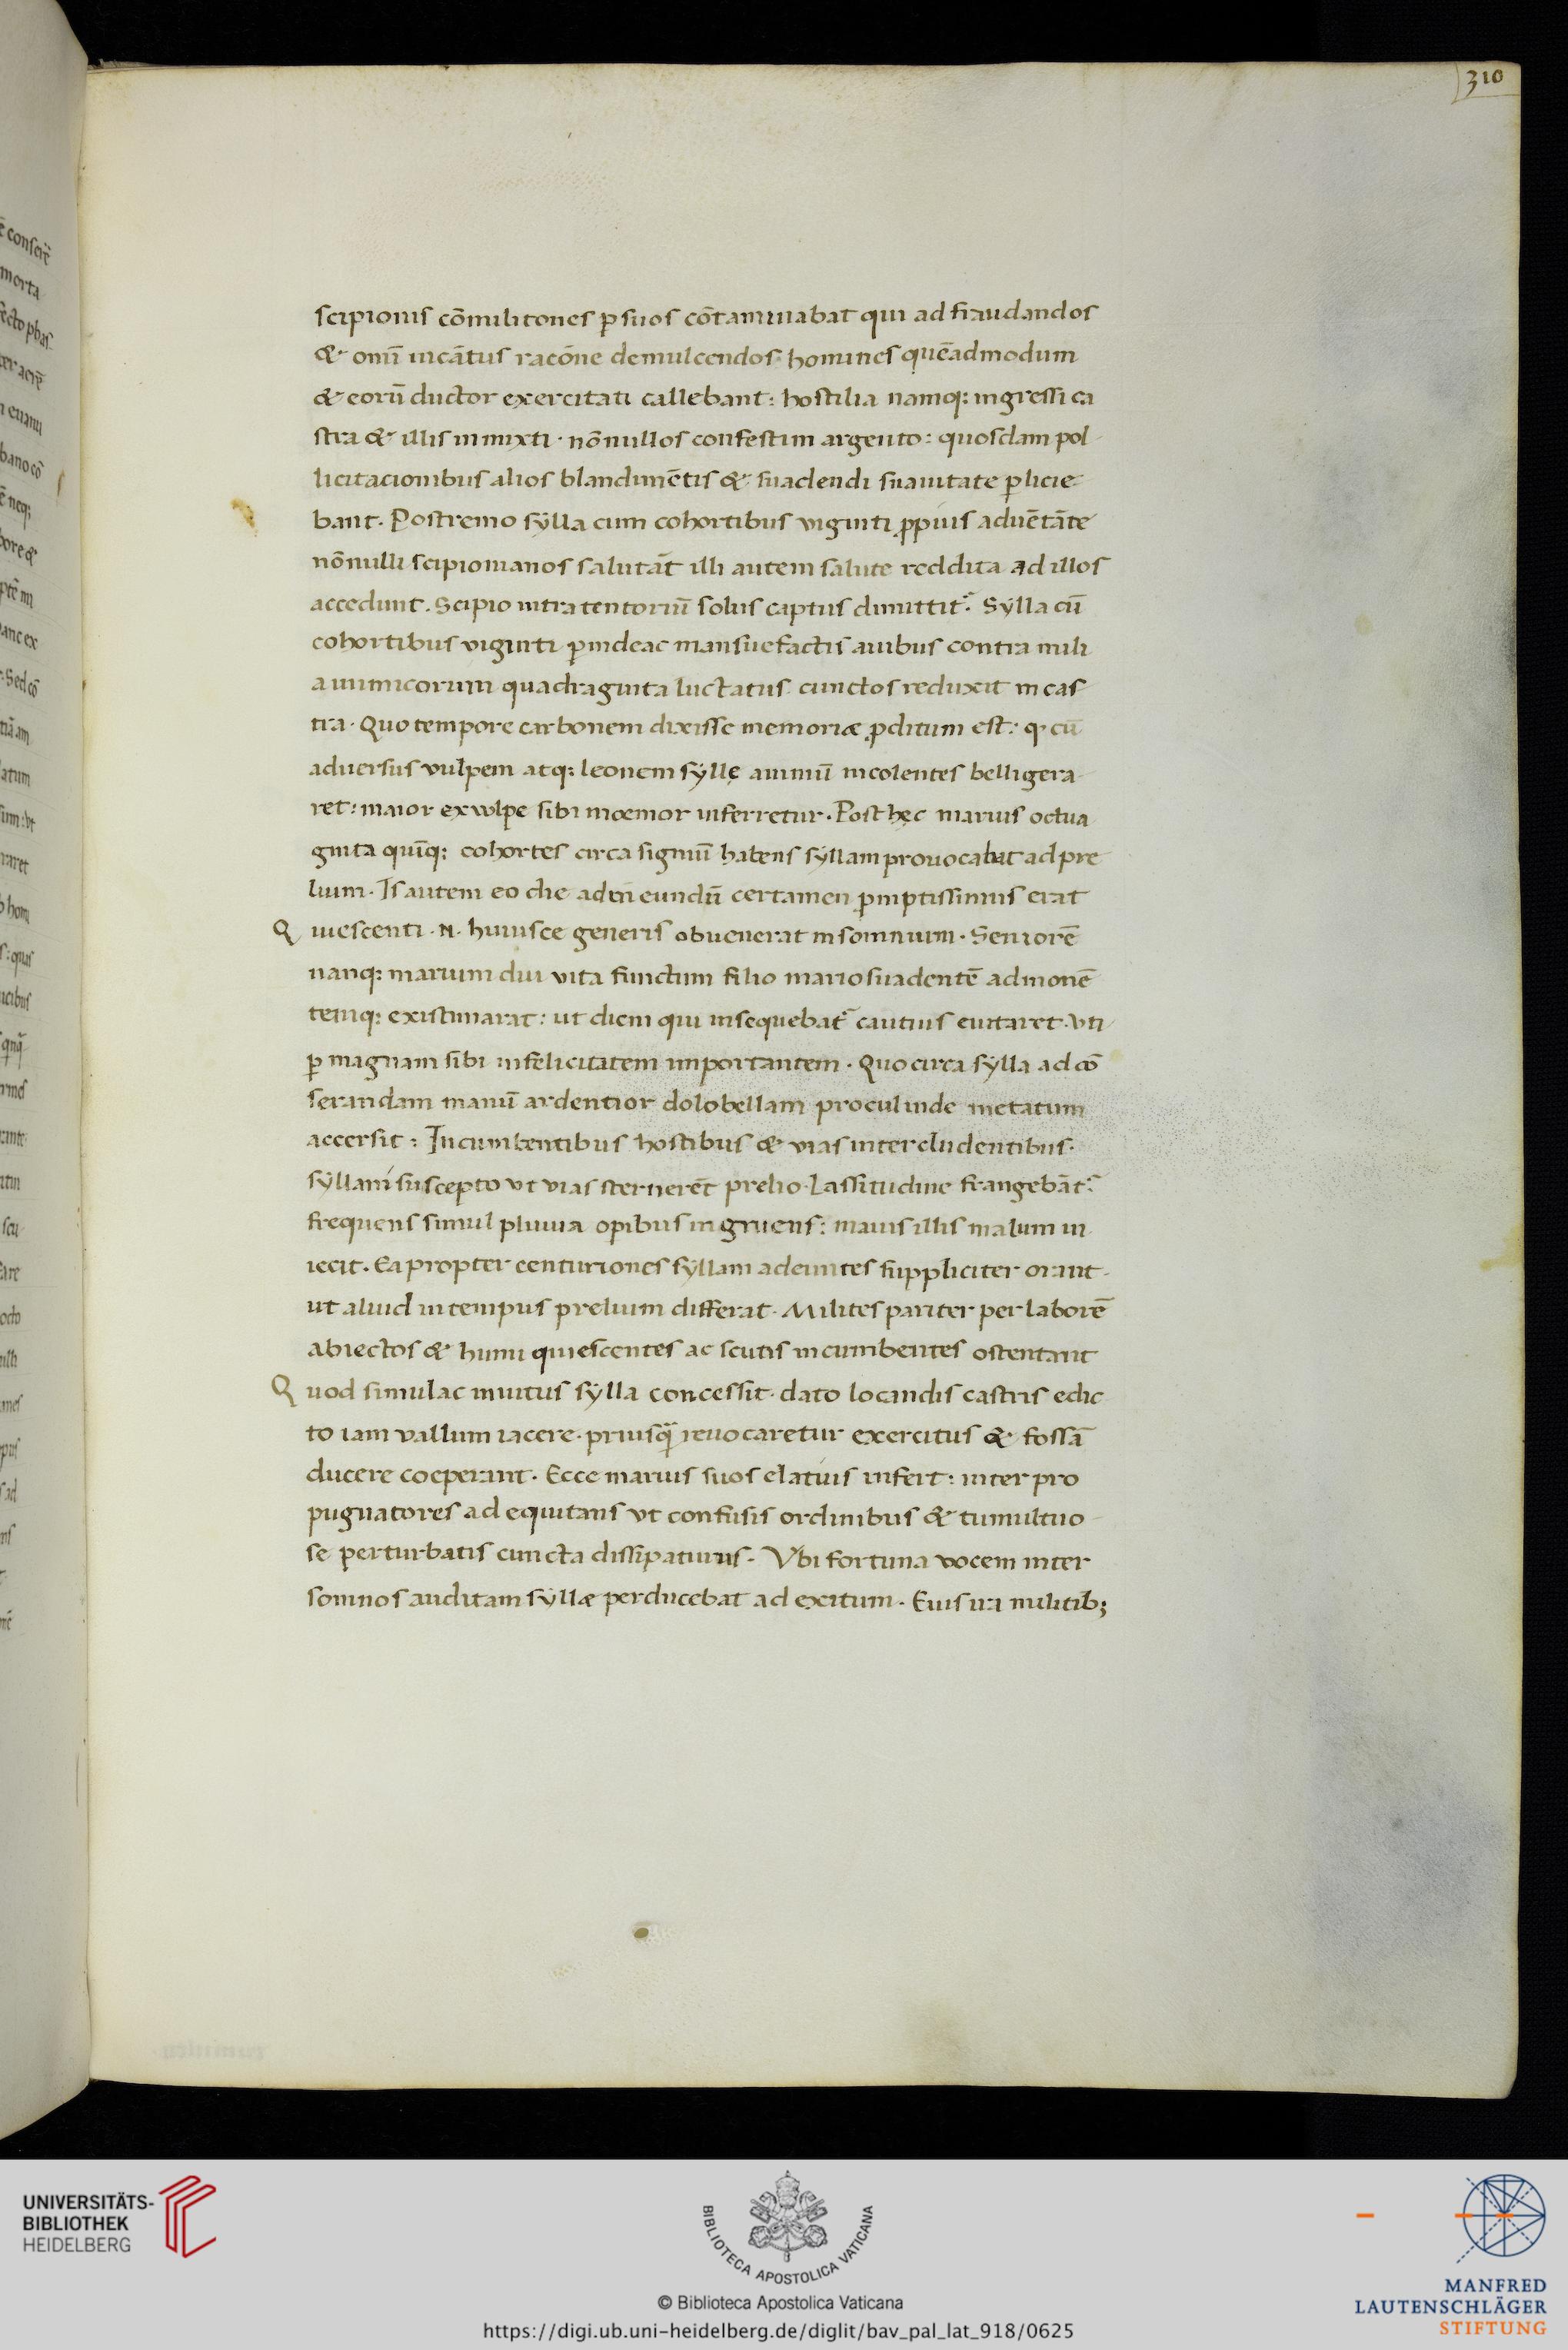 310
scipionis cõmilitones ꝑ suos cõtaminabat qui ad fraudandos
& om̃i incãtus racõne demulcendos homines quẽadmodum
& eorũ ductor exercitati callebant: hostilia namq; ingressi ca
stra & illis inmixti · nõnullos confestim argento: quosdam pol
licitacionibus alios blandimẽtis & suadendi suauitate ꝑlicie
bant. Postremo sẏlla cum cohortibus viginti ꝓpius aduẽtãte
nõnulli scipionianos salutãt illi autem salute reddita ad illos
accedunt. Scipio intra tentoriũ solus captus dimittit᷑. Sẏlla cũ
cohortibus viginti ꝑindeac mansuefactis auibus contra mili
a inimicorum quadraginta luctatus cunctos reduxit in cas
tra. Quo tempore carbonem dixisse memoriæ ꝓditum est: q cũ
aduersus vulpem atq; leonem sẏllę animũ incolentes belligera
ret: maior ex vulpe sibi moemor inferretur. Post hęc marius octua
ginta quĩq; cohortes circa signiũ habens sẏllam prouocabat ad pre
lium. Is autem eo die ad in eundũ certamen ꝓmptissimus erat
Quiescenti .N. huiusce generis obuenerat insomnium. Seniorẽ
nanq; marium diu vita functum filio mario suadentẽ admonẽ
temq; existimarat: ut diem qui insequebat᷑ cautius euitaret. vti
ꝑ magnam sibi infelicitatem importantem. Quo circa sẏlla ad cõ
serandam manũ ardentior dolobellam procul inde metatum
accersit: Incumbentibus hostibus & vias intercludentibus.
sẏllani suscepto vt vias sternerẽt prelio. Lassitudine frangebãt᷑:
frequens simul pluuia opibus ingruens: maius illis malum in
iecit. Ea propter centuriones sẏllam adeuntes suppliciter orant
ut aliud in tempus prelium differat. Milites pariter per laborẽ
abiectos & humi quiescentes ac scutis incumbentes ostentant
Quod simulac inuitus sẏlla concessit. dato locandis castris edic
to iam vallum iacere. priusq̃ reuocaretur exercitus & fossã
ducere coeperant. Ecce marius suos elatius infert: inter pro
pugnatores ad equitans vt confusis ordinibus & tumultuo
se perturbatis cuncta dissipaturus. Vbi fortuna vocem inter
somnos auditam sẏllæ perducebat ad exitum. Eius ira militib;
UNIVERSITÄTS-
BIBLIOTHEK
HEIDELBERG
BIBLIOTECA APOSTOLICA VATICANA
© Biblioteca Apostolica Vaticana
https://digi.ub.uni-heidelberg.de/diglit/bav_pal_lat_918/0625
MANFRED
LAUTENSCHLÄGER
STIFTUNG